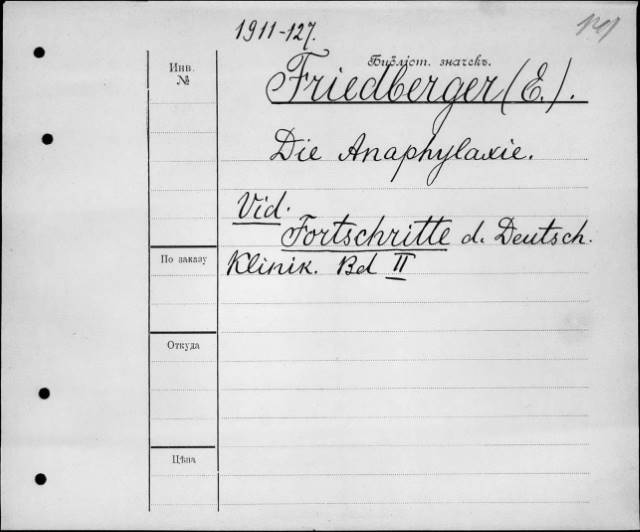 1911-127.
Инв.
№
Библіот. значекъ.
Friedberger (E.).
Die Anaphylaxie.
Vid.
Fortschritte d. Deutsch.
По заказу
Klinik. Bd II
Откуда
Цѣна